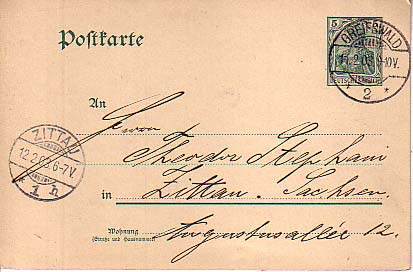 Postkarte
5
GREIFSWALD
11.2.03.9-10V.
DEUTSCHES REICH
2 *
An
Herrn
Theodor Stephani
ZITTAU
12.2.03.6-7V.
1 h
in Zittau. Sachsen.
Wohnung
(Straße und Hausnummer)
Augustusallée 12.